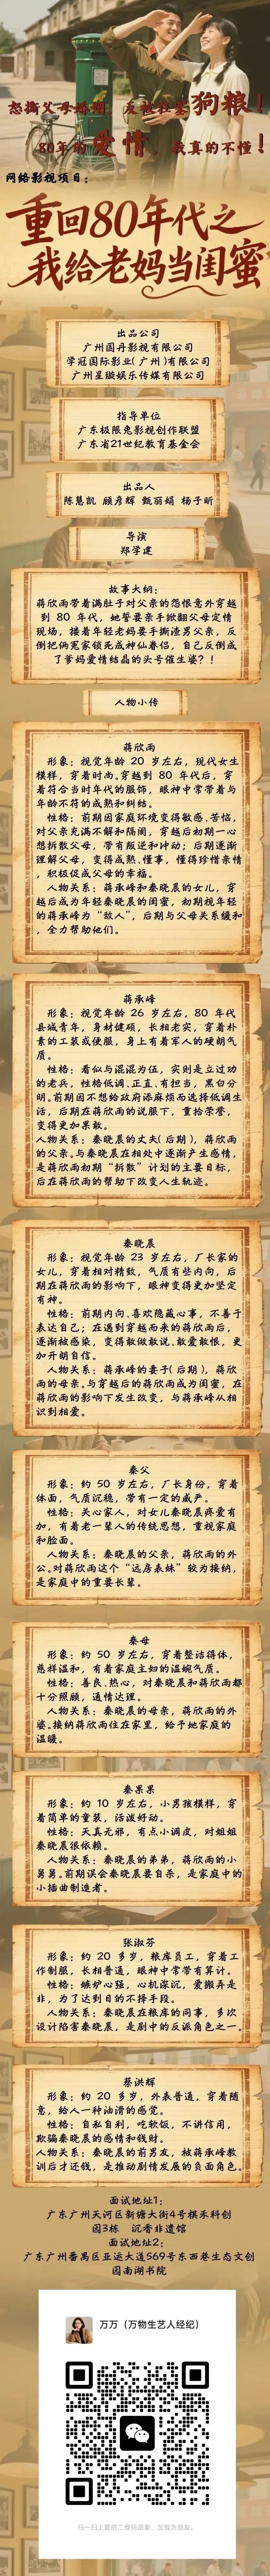 怒撕父母婚姻，反被社塞狗粮！
80年的爱情，我真的不懂！
网络影视项目：
重回80年代之
我给老妈当闺蜜
出品公司
广州国丹影视有限公司
学冠国际影业(广州)有限公司
广州星璇娱乐传媒有限公司
指导单位
广东极限兔影视创作联盟
广东省21世纪教育基金会
出品人
陈慧凯 顾彦辉 甄丽娟 杨于昕
导演
郑学建
故事大纲：
蒋欣雨带着满肚子对父亲的怨恨意外穿越
到 80 年代，她誓要亲手掀翻父母定情
现场，接着年轻老妈要手撕渣男父亲，反
倒把俩冤家锁死成神仙眷侣，自己反倒成
了爹妈爱情结晶的头号催生婆？！
人物小传
蒋欣雨
形象：视觉年龄 20 岁左右，现代女生
模样，穿着时尚。穿越到 80 年代后，穿
着符合当时年代的服饰，眼神中常带着与
年龄不符的成熟和纠结。
性格：前期因家庭环境变得敏感、苦恼，
对父亲充满不解和隔阂，穿越后初期一心
想拆散父母，带有叛逆和冲动；后期逐渐
理解父母，变得成熟、懂事，懂得珍惜亲情
，积极促成父母的幸福。
人物关系：蒋承峰和秦晓晨的女儿，穿
越后成为年轻秦晓晨的闺蜜，初期视年轻
的蒋承峰为“敌人”，后期与父母关系缓和
，全力帮助他们。
蒋承峰
形象：视觉年龄 26 岁左右，80 年代
县城青年，身材健硕，长相老实，穿着朴
素的工装或便服，身上有着军人的硬朗气
质。
性格：看似与混混为伍，实则是立过功
的老兵，性格低调、正直、有担当，黑白分
明。前期因不想给政府添麻烦而选择低调生
活，后期在蒋欣雨的说服下，重拾荣誉，
变得更加果敢。
人物关系：秦晓晨的丈夫(后期)，蒋欣雨
的父亲。与秦晓晨在相处中逐渐产生感情，
是蒋欣雨初期“拆散”计划的主要目标，
后在蒋欣雨的帮助下改变人生轨迹。
秦晓晨
形象：视觉年龄 23 岁左右，厂长家的
女儿，穿着相对精致，气质有些内向，后
期在蒋欣雨的影响下，眼神变得更加坚定
有神。
性格：前期内向、喜欢隐藏心事，不善于
表达自己；在遇到穿越而来的蒋欣雨后，
逐渐被感染，变得敢做敢说、敢爱敢恨，更
加开朗自信。
人物关系：蒋承峰的妻子(后期)，蒋欣
雨的母亲。与穿越后的蒋欣雨成为闺蜜，在
蒋欣雨的影响下发生改变，与蒋承峰从相
识到相爱。
秦父
形象：约 50 岁左右，厂长身份，穿着
体面，气质沉稳，带有一定的威严。
性格：关心家人，对女儿秦晓晨疼爱有
加，有着老一辈人的传统思想，重视家庭
和脸面。
人物关系：秦晓晨的父亲，蒋欣雨的外
公。对蒋欣雨这个“远房表妹”较为接纳，
是家庭中的重要长辈。
秦母
形象：约 50 岁左右，穿着整洁得体，
慈祥温和，有着家庭主妇的温婉气质。
性格：善良、热心，对秦晓晨和蒋欣雨都
十分照顾，通情达理。
人物关系：秦晓晨的母亲，蒋欣雨的外
婆。接纳蒋欣雨住在家里，给予她家庭的
温暖。
秦果果
形象：约 10 岁左右，小男孩模样，穿
着简单的童装，活泼好动。
性格：天真无邪，有点小调皮，对姐姐
秦晓晨很依赖。
人物关系：秦晓晨的弟弟，蒋欣雨的小
舅舅。前期误会秦晓晨要自杀，是家庭中的
小插曲制造者。
张淑芬
形象：约 20 多岁，粮库员工，穿着工
作制服，长相普通，眼神中常带有算计。
性格：嫉妒心强，心机深沉，爱搬弄是
非，为了达到目的不择手段。
人物关系：秦晓晨在粮库的同事，多次
设计陷害秦晓晨，是剧中的反派角色之一。
蔡洪辉
形象：约 20 多岁，外表普通，穿着随
意，给人一种油滑的感觉。
性格：自私自利，吃软饭，不讲信用，
欺骗秦晓晨的感情和钱财。
人物关系：秦晓晨的前男友，被蒋承峰教
训后才还钱，是推动剧情发展的负面角色。
面试地址1：
广东广州天河区新塘大街4号棋禾科创
园3栋 沉香非遗馆
面试地址2：
广东广州番禺区亚运大道569号东西巷生态文创
园南湖书院
万万（万物生艺人经纪）
扫一扫上面的二维码图案，加我为朋友。